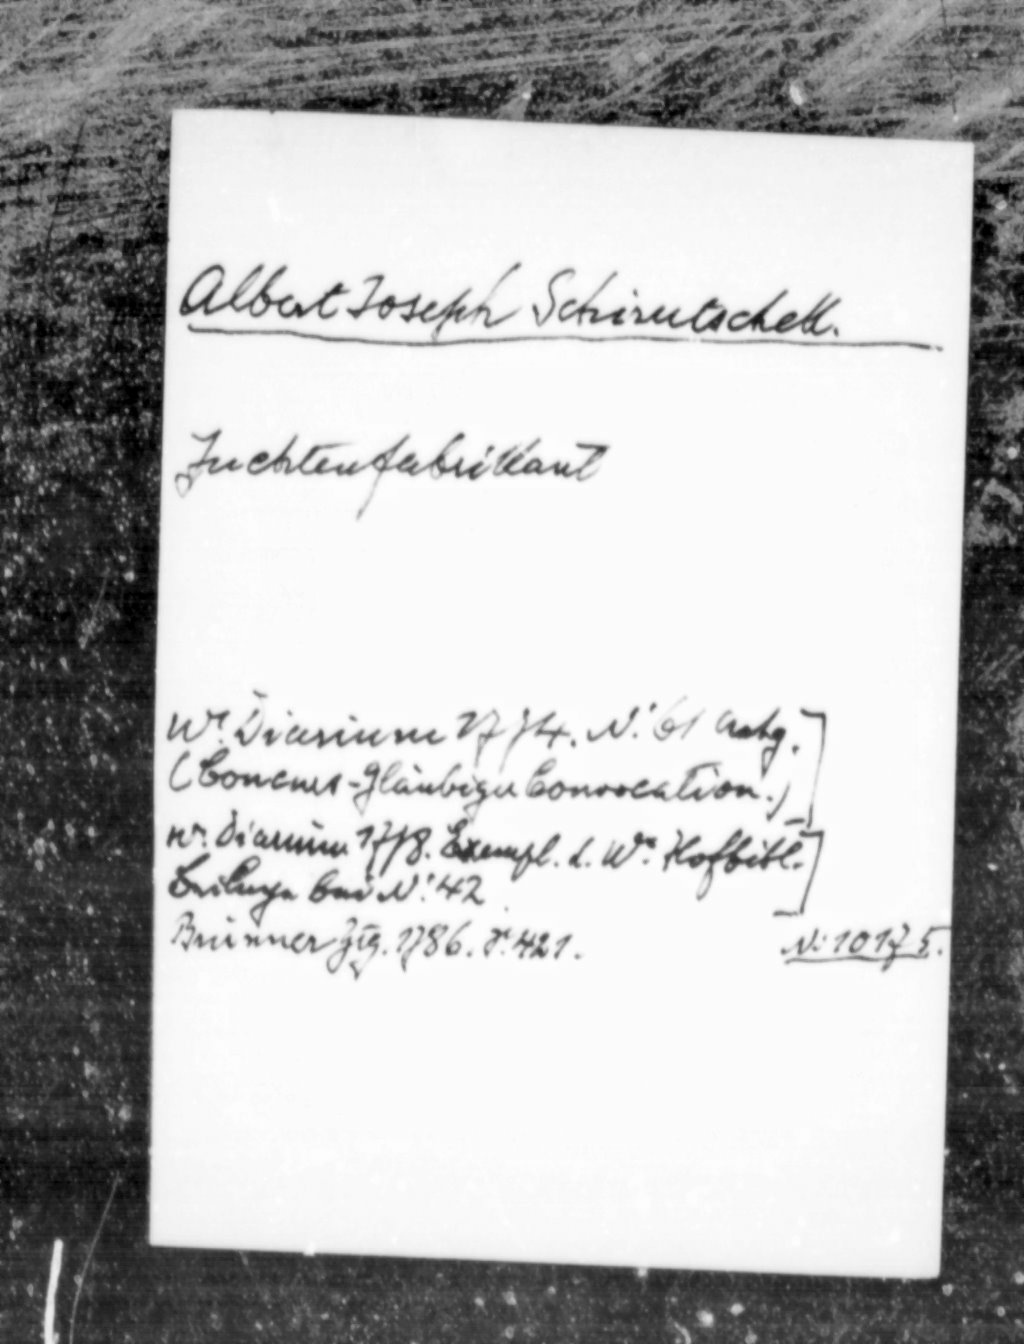 Albert Joseph Schirutschek.
Juchtenfabrikant
Wr. Diarium 1774. N: 61 Anhg.
(Concurs-Gläubiger Convocation.)
Wr. Diarium 1778. Exempl. d. Wr. Hofbibl.
Beilage bei N: 42
Brünner Ztg. 1786. S. 421.
N: 10175.